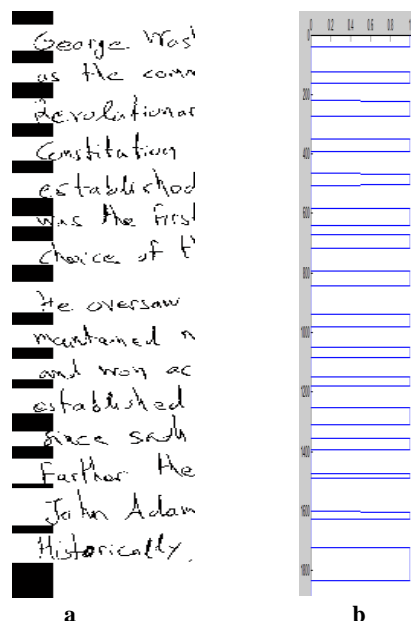 George Was
as the comm
Revolutionar
Constitution
established
was the first
choice of t
He oversaw
maintained n
and won ac
established
since such
Farther the
John Adam
Historically,
0 0.2 0.4 0.6 0.8 1
0
200
400
600
800
1000
1200
1400
1600
1800
a b